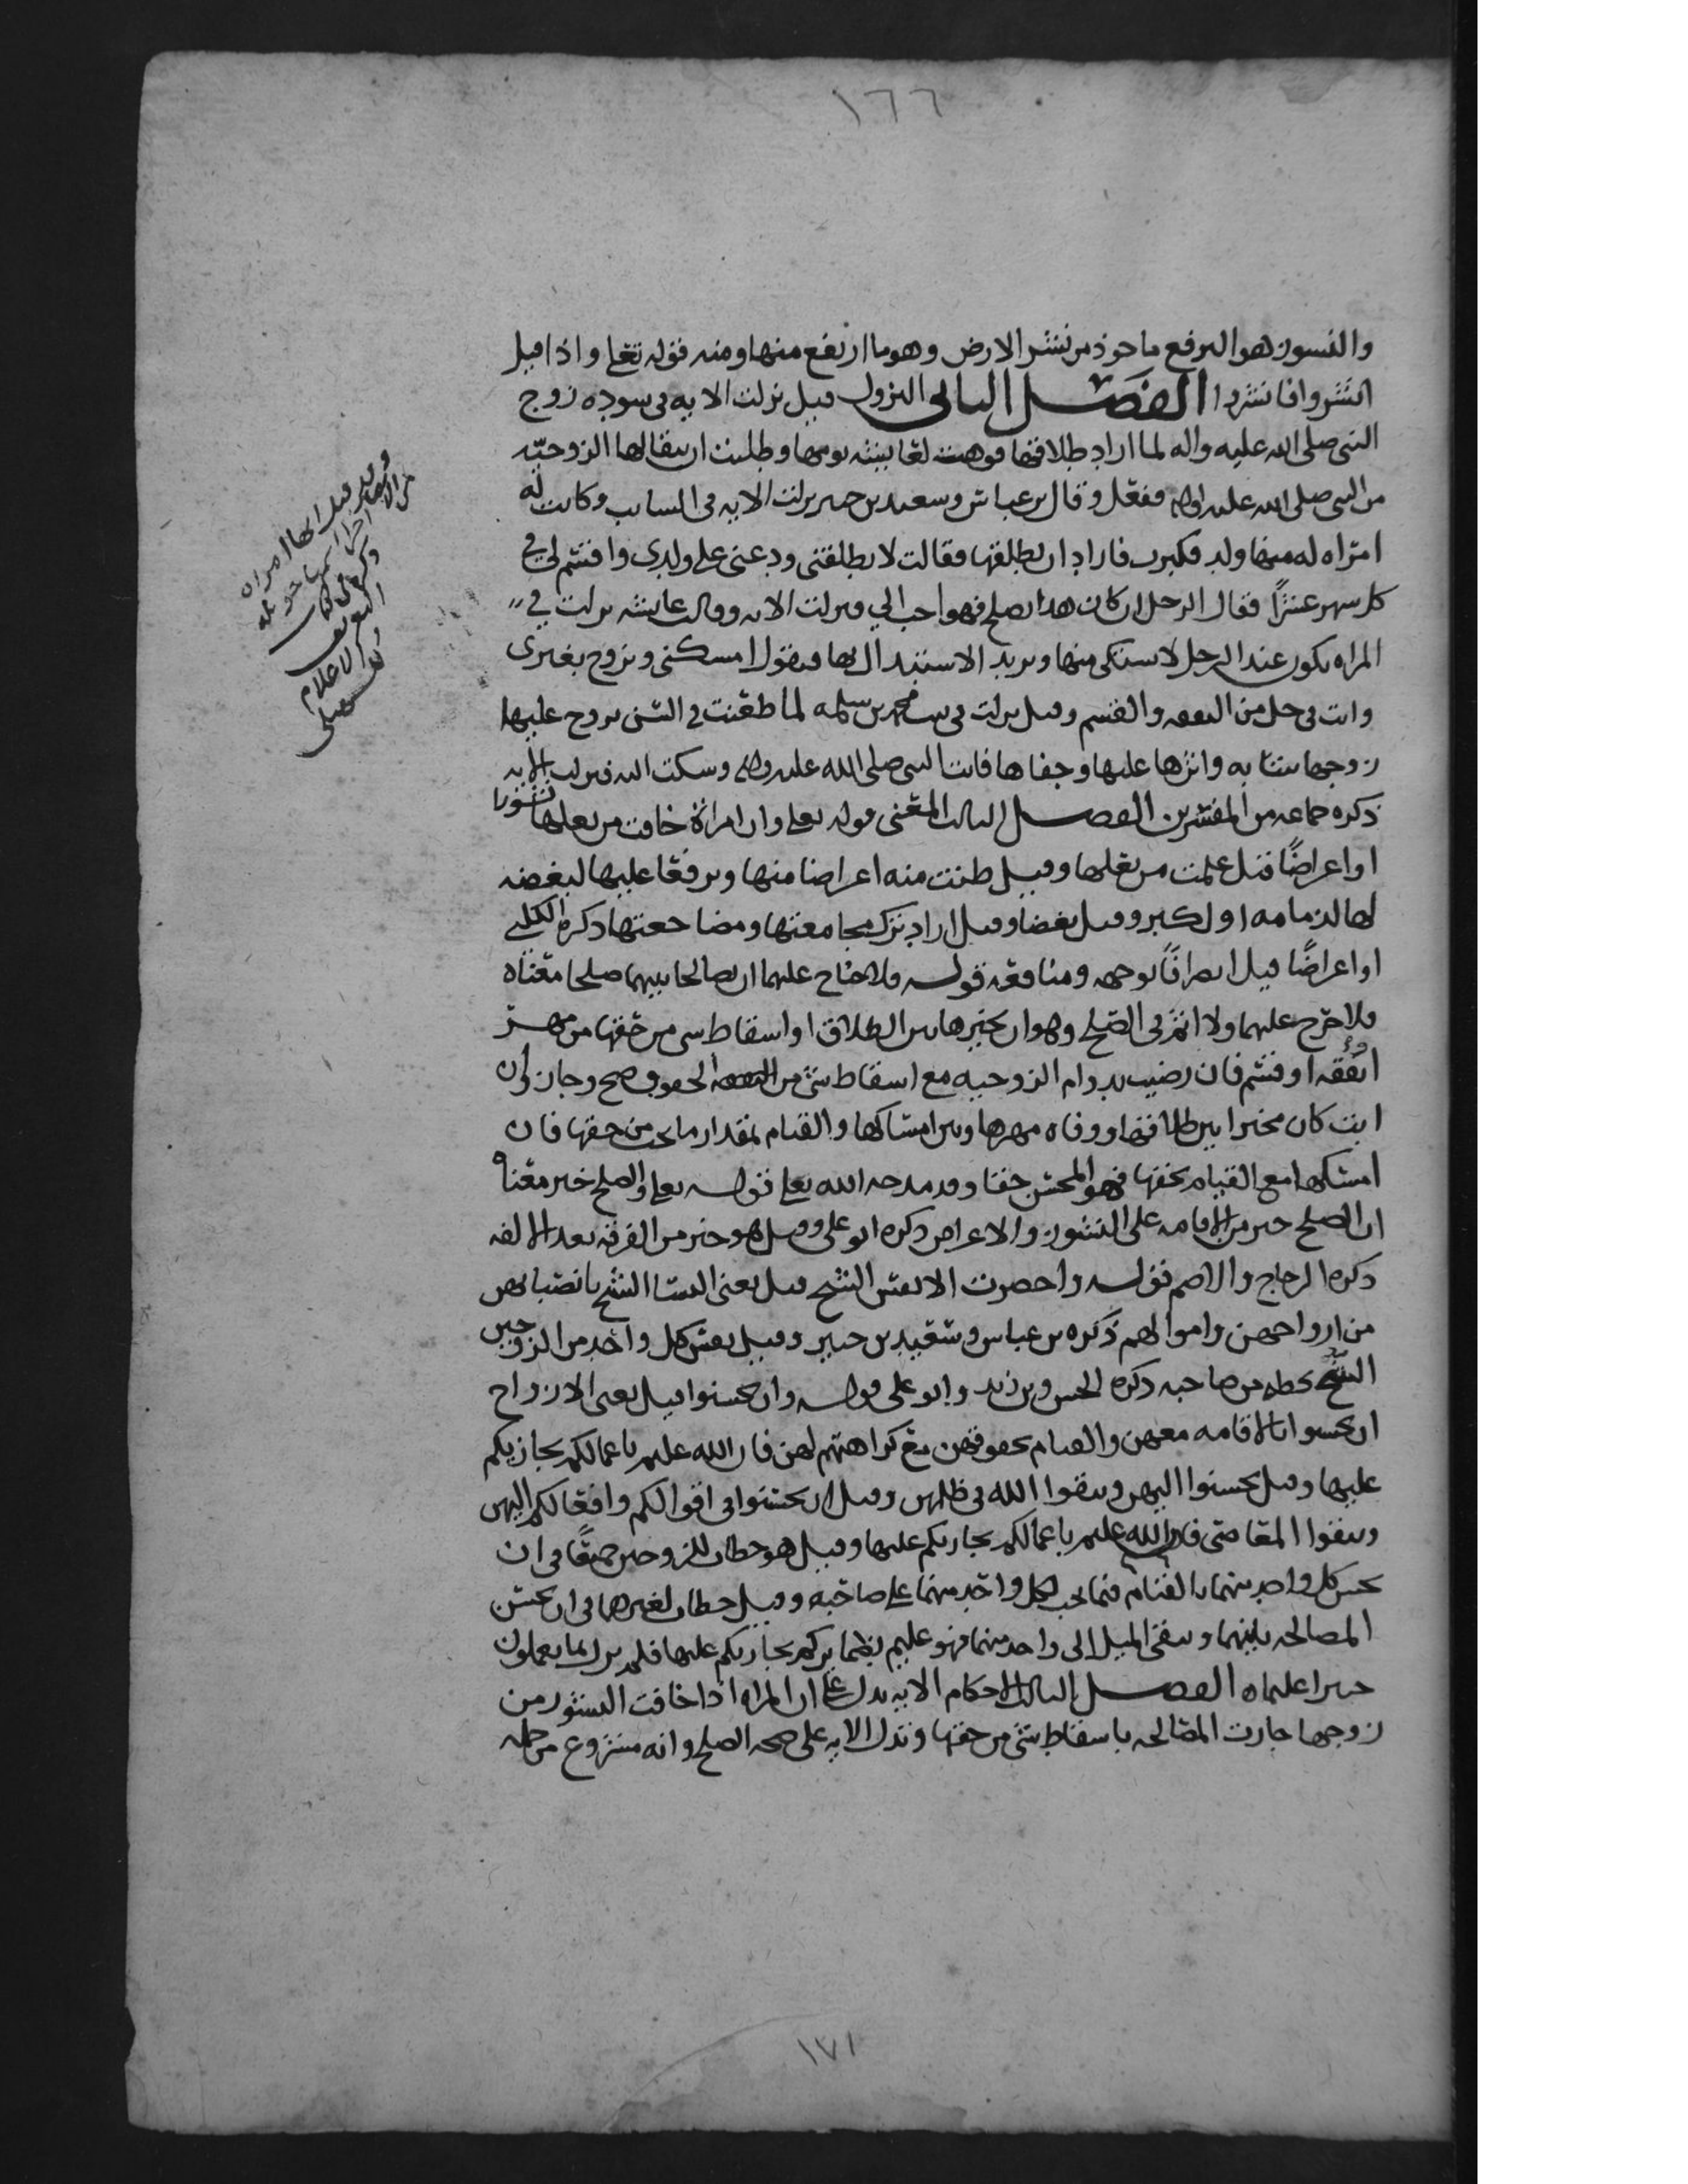 ١٦٦
والنشوز هو الترفع ماخوذ من نشز الارض وهو ما ارتفع منها ومنه قوله تعلى واذا قيل
انشزوا فانشزوا الفصل الثاني النزول قيل نزلت الايه في سوده زوج
النبي صلى الله عليه واله لما اراد طلاقها فوهبت لعايشه يومها وطلبت ان يبقا لها الزوجيّه
من النبي صلى الله عليه واله ففعل وقال بن عباس وسعيد بن جبير نزلت الايه في السايب وكانت له
امراه له منها ولد فكبرت فاراد ان يطلقها فقالت لا تطلقني ودعني على ولدي واقسم لي في
كل شهر عشرًا فقال الرجل ان كان هذا يصلح فهو احب الي فنزلت الايه وقالت عايشه نزلت في
المراه تكون عند الرجل لا يستكثر منها ويريد الاستبدال بها فتقول امسكني وتزوج بغيري
وانت في حل من النفقه والقسم وقيل نزلت في بنت محمد بن سلمه لما طعنت في السن تزوج عليها
زوجها شابه واثرها عليها وجفاها فاتت النبي صلى الله عليه واله وشكت اليه فنزلت الايه
ذكره جماعه من المفسرين الفصل الثالث المعنى قوله تعلى وان امراة خافت من بعلها نشوزا
او اعراضًا قيل علمت من بعلها وقيل ظنت منه اعراضا منها وترفعا عليها لبغضه
لها لدمامه او لكبر وقيل بغضا وقيل اراد ترك مجامعتها ومضاجعتها ذكره الكلبي
او اعراضًا قيل انصرافًا بوجهه ومنافعه قوله ولا جناح عليهما ان يصالحا بينهما صلحا معناه
ولا حرج عليهما ولا اثم في الصلح وهو ان يخيرها بين الطلاق او اسقاط شي من حقها من مهر
او نفقه او قسم فان رضيت بدوام الزوجيه مع اسقاط شي من الحقوق صح وجاز وان
ابت كان مخيرا بين طلاقها ووفاه مهرها وبين امساكها والقيام بمقدار ما يجب من حقها فان
امسكها مع القيام بحقها فهو المحسن حقا وقد مدحه الله تعلى قوله تعلى والصلح خير معناه
ان الصلح خير من الاقامه على النشوز والاعراض ذكره ابو علي وقيل هو خير من الفرقه بعد الالفه
ذكره الزجاج والاصم قوله واحضرت الانفس الشح قيل يعني النسا الشح بانصبايهن
من ازواجهن واموالهم ذكره بن عباس وسعيد بن جبير وقيل نفس كل واحد من الزوجين
الشح بحظه من صاحبه ذكره الحسن وبن زيد وابو علي قوله وان تحسنوا قيل يعني الازواج
ان تحسنوا بالاقامه معهن والقيام بحقوقهن مع كراهتهم لهن فان الله عليم باعمالكم يجازيكم
عليها وقيل تحسنوا اليهن وتتقوا الله في ظلمهن وقيل ان تحسنوا في اقوالكم وافعالكم اليهن
وتتقوا المعاصي فان الله عليم باعمالكم يجازيكم عليها وقيل هو خطاب للزوجين جميعًا في ان
يحسن كل واحد منهما بالقيام فيما يجب لكل واحد منهما على صاحبه وقيل خطاب لغيرهما في ان تحسن
المصالحه بينهما وتتقي الميل الى واحد منهما فهو عليم يجازيكم عليها فلم يزل بما يعملون
خبيرا عليما الفصل الاحكام الايه تدل على ان المراه اذا خافت النشوز من
زوجها جازت المصالحه باسقاط شي من حقها وتدل الايه على صحه الصلح وانه مشروع من جمله
ذكره في كتاب
التعريف
والاعلام
للسهيلي
١٧١